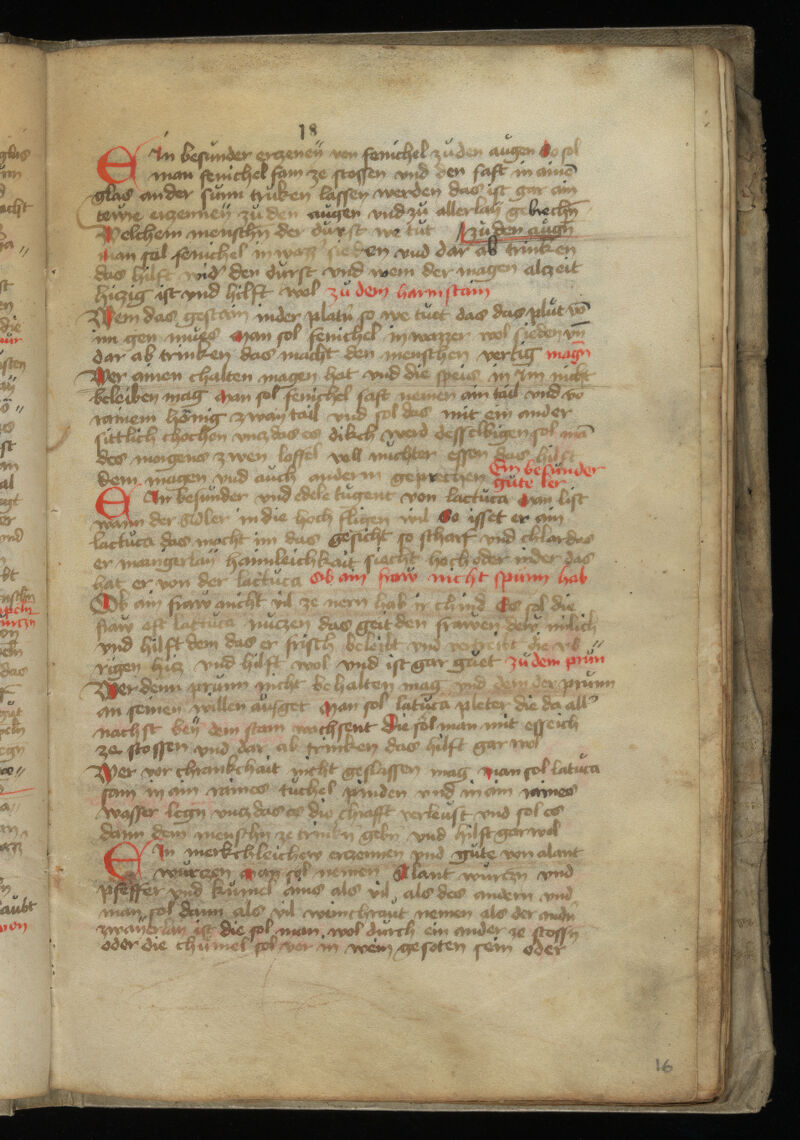 18
Ein besunder erczeneӱ von fenichel zu den augen So sol
man fenichel sam ze stossen vnd den saft in ainē
glas an der sunn truken lassen werden das ist gar ain
tewre erczenneӱ zu den augen vnd zu allerlaӱ gebrechn̄
Welchem menschn̄ der durst we tut zu den augn̄
Man sol fenichel in wazz sieden vnd dar ab trinken
das hilft wid' den durst vnd wem der magen alczeit
hiczig ist vnd hilft wol zu dem harmstain
Wem das gestain in der platn̄ so we tuet das das plut vō
im gen mues Man sol fenichel in wazzer wol sieden vn̄
dar ab trinken das macht den menschen vertig magn̄
Wer ainen chalten magen hat vnd die speis in Im nicht
beleiben mag Man sol fenichel saft nemen ain tail vnd vō
rainem hönig zwaӱ tail vnd sol das mit ein ander
sittlich chochen vncz das es dikch werd desselbigen sol mā
des morgens zwen loffel voll nuchter essen das hilft
dem magen vnd auch andern geprechen Ein besunder
gute ler
Ein besunder vnd edele tugent von lactuca Man list
wann der Adler in die hoch fligen wil So isset er ain
lactuca das macht im das gesicht so scharf vnd chlar das
er maigerlaӱ haimleichkait siecht hoch oder nider das
hat er von der lactuca Ob ain fraw nicht spünn hab
Ob ain fraw nicht vil ze nern hab ir chind So sol die
fraw oft lactuca nuczen das geit den frawen vil milich
vnd hilft dem das er frisch beleibt vnd vertreibt die vb''
rigen hicz vnd hilft wol vnd ist gar guet zu dem prun
Wer denn prunn nicht behalten mag vnd dem der prunn
an seinen willen ausget Man sol latuca pleter die da all'
nachst beӱ dem stam wachsent Die sol man mit esseich
ze stossen vnd dar ab trinken das hilft gar wol
Wer vor chrankchait nicht geslaffen mag Man sol latuca
sam in ain raines tüchel pinden vnd in ain raines
wasser legn vncz das es die chrafft verleust vnd sol es
dann dem menschn̄ ze trinkn̄ gebn̄ vnd hilft gar wol
Ein merkchleichew erczennei vnd güte von alant
wurczen Man sol nemen Alant wurczn vnd
pfeffer vnd kumel ains als vil als des andern vnd
man sol dann als vil weinchraut nemen als der andn̄
zwaӱerlaӱ ist die sol man wol durch ein ander ze stossn̄
oder die chümel sol vor in wein gesoten sein oder
16